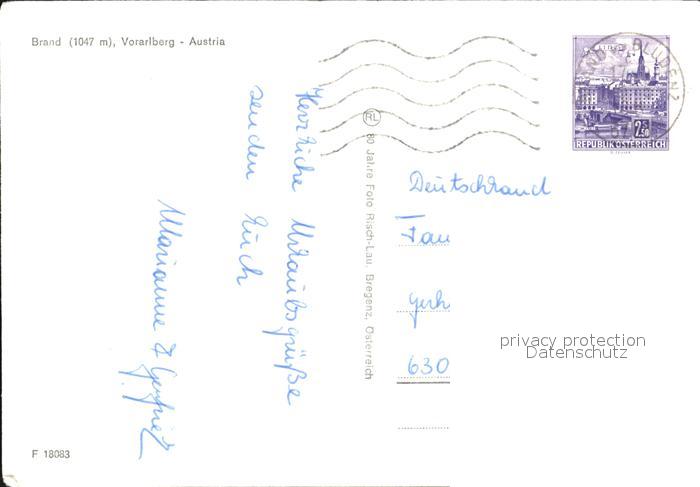 Brand (1047 m), Vorarlberg - Austria
Herzliche Urlaubsgrüße
senden Euch
Marianne &
80 Jahre Foto Risch-Lau, Bregenz, Österreich
RL
BLUDENZ
2.50
REPUBLIK ÖSTERREICH
Deutschland
Fam
Gerh
630
privacy protection
Datenschutz
F 18083